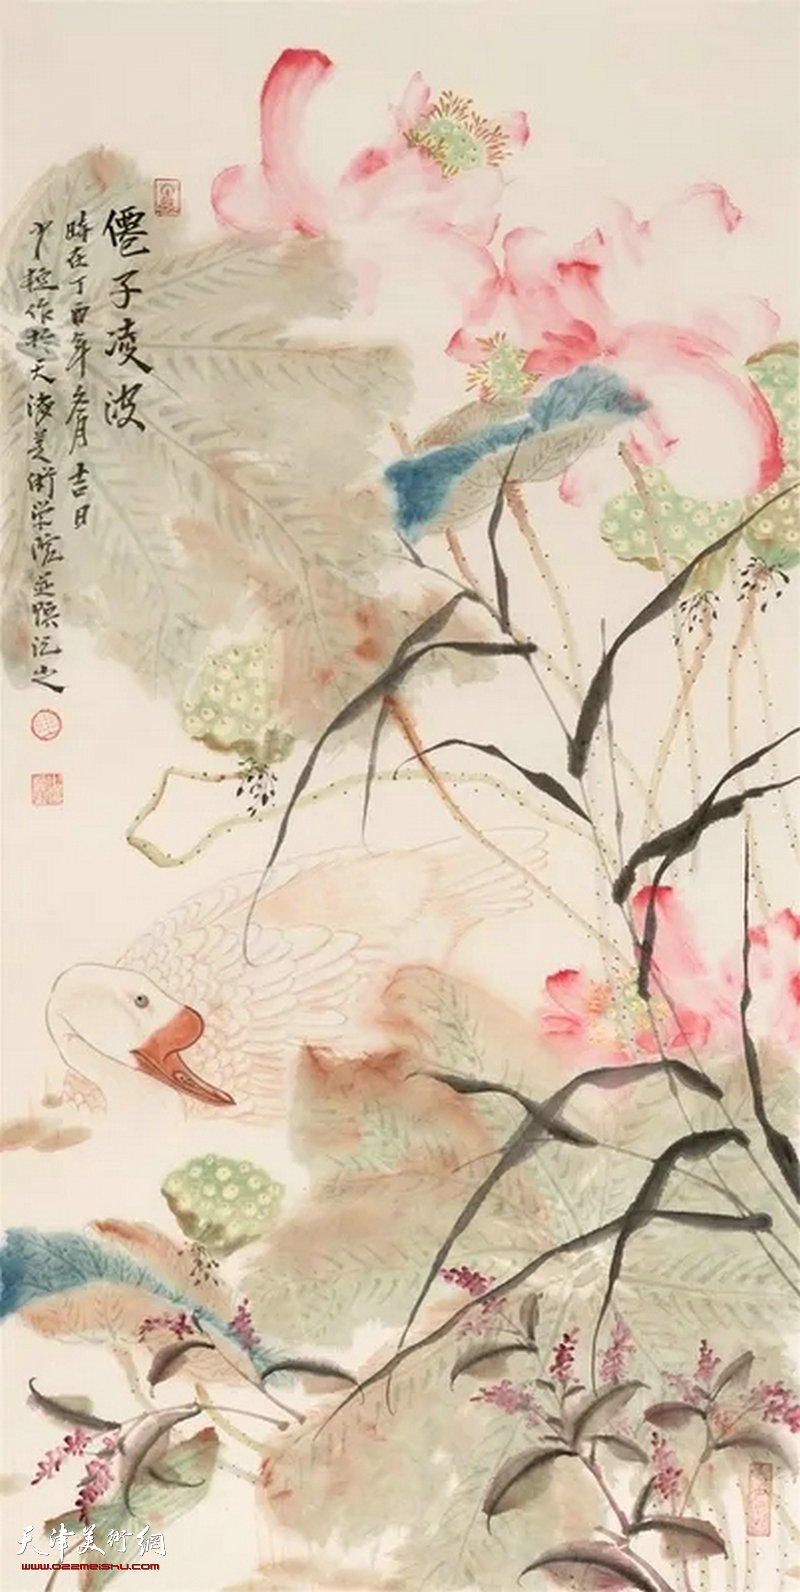 僊子凌波
時在丁酉年冬月吉日
作於天津美術学院並懆记之
天津美術網
www.022meishu.com